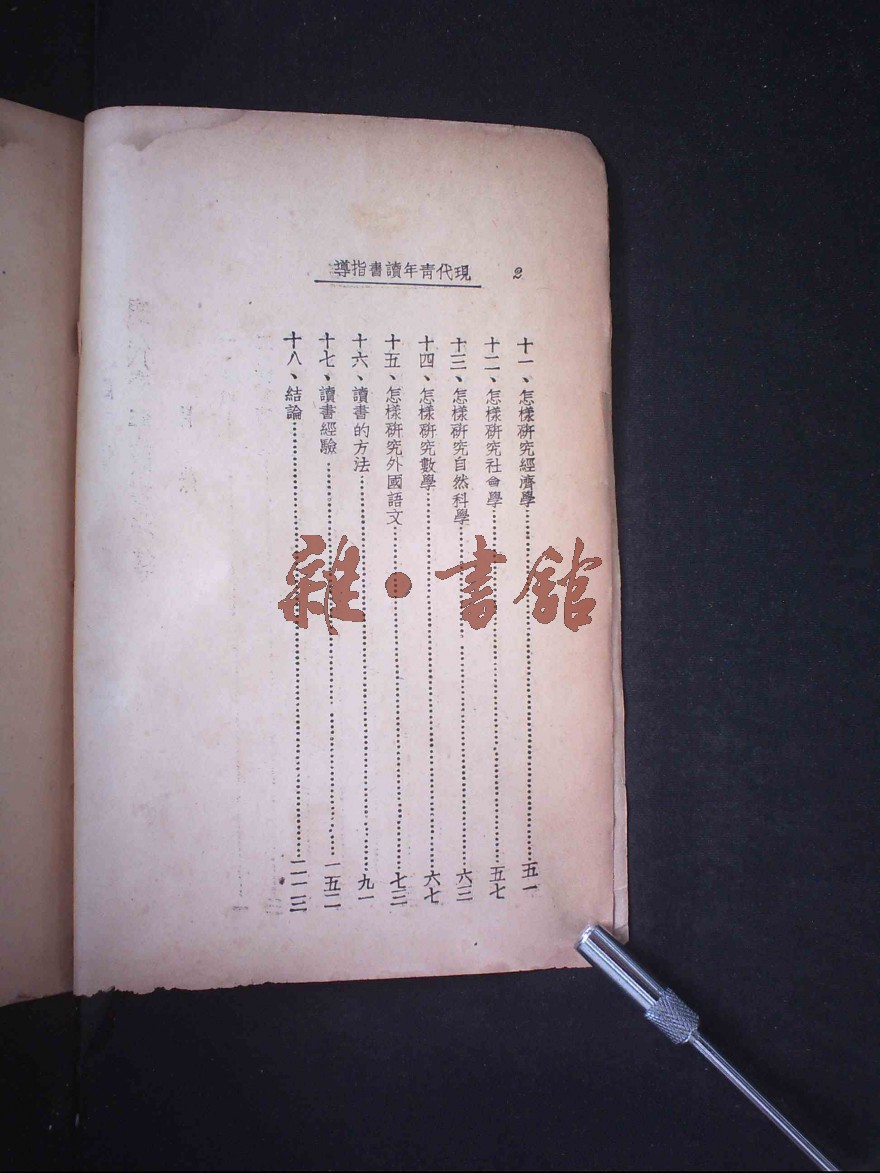 現代青年讀書指導
2
十一、怎樣研究經濟學……五一
十二、怎樣研究社會學……五七
十三、怎樣研究自然科學……六三
十四、怎樣研究數學……六七
十五、怎樣研究外國語文……七三
十六、讀書的方法……九一
十七、讀書經驗……一五二
十八、結論……二一三
雜·書館